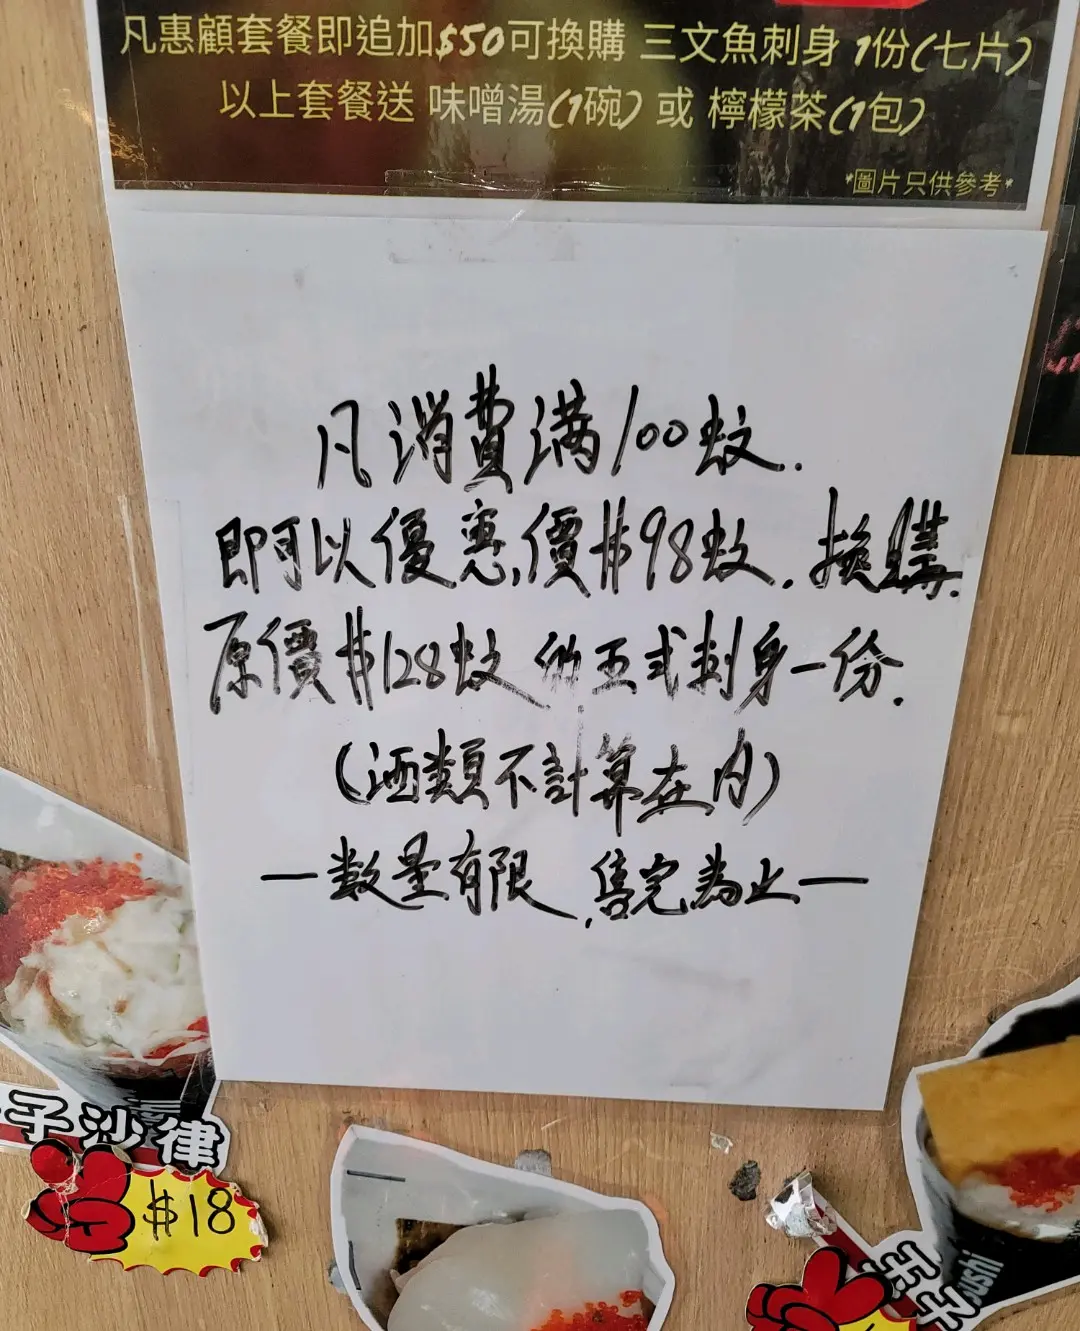 凡惠顧套餐即追加$50可換購 三文魚刺身 1份(七片)
以上套餐送 味噌湯(1碗) 或 檸檬茶(1包)
*圖片只供參考*
凡消費满100蚊.
即可以優惠價$98蚊.換購.
原價$128蚊的五式刺身一份.
(酒類不計算在内)
—数量有限,售完為止—
子沙律
$18
玉子
sushi